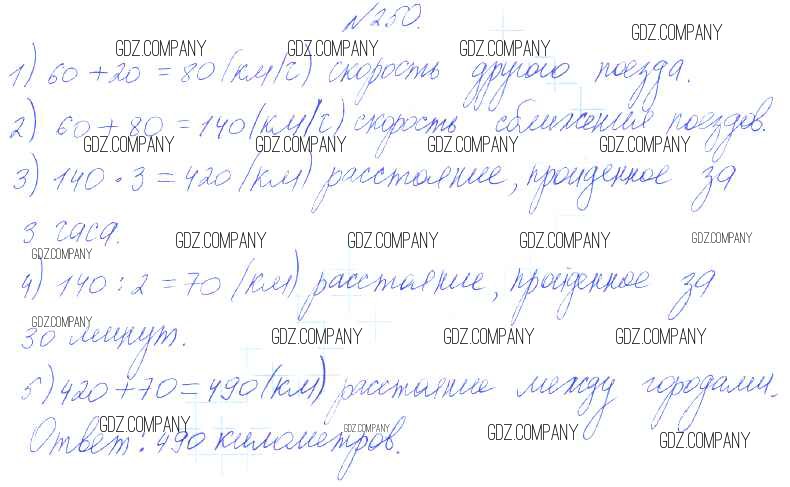 №250.
1) 60 + 20 = 80 (км/ч) скорость другого поезда.
2) 60 + 80 = 140 (км/ч) скорость сближения поездов.
3) 140 · 3 = 420 (км) расстояние, пройденное за
3 часа.
4) 140 : 2 = 70 (км) расстояние, пройденное за
30 минут.
5) 420 + 70 = 490 (км) расстояние между городами.
Ответ: 490 километров.
GDZ.COMPANY
GDZ.COMPANY GDZ.COMPANY GDZ.COMPANY
GDZ.COMPANY GDZ.COMPANY GDZ.COMPANY GDZ.COMPANY
GDZ.COMPANY GDZ.COMPANY GDZ.COMPANY GDZ.COMPANY
GDZ.COMPANY
GDZ.COMPANY
GDZ.COMPANY GDZ.COMPANY GDZ.COMPANY
GDZ.COMPANY GDZ.COMPANY GDZ.COMPANY GDZ.COMPANY